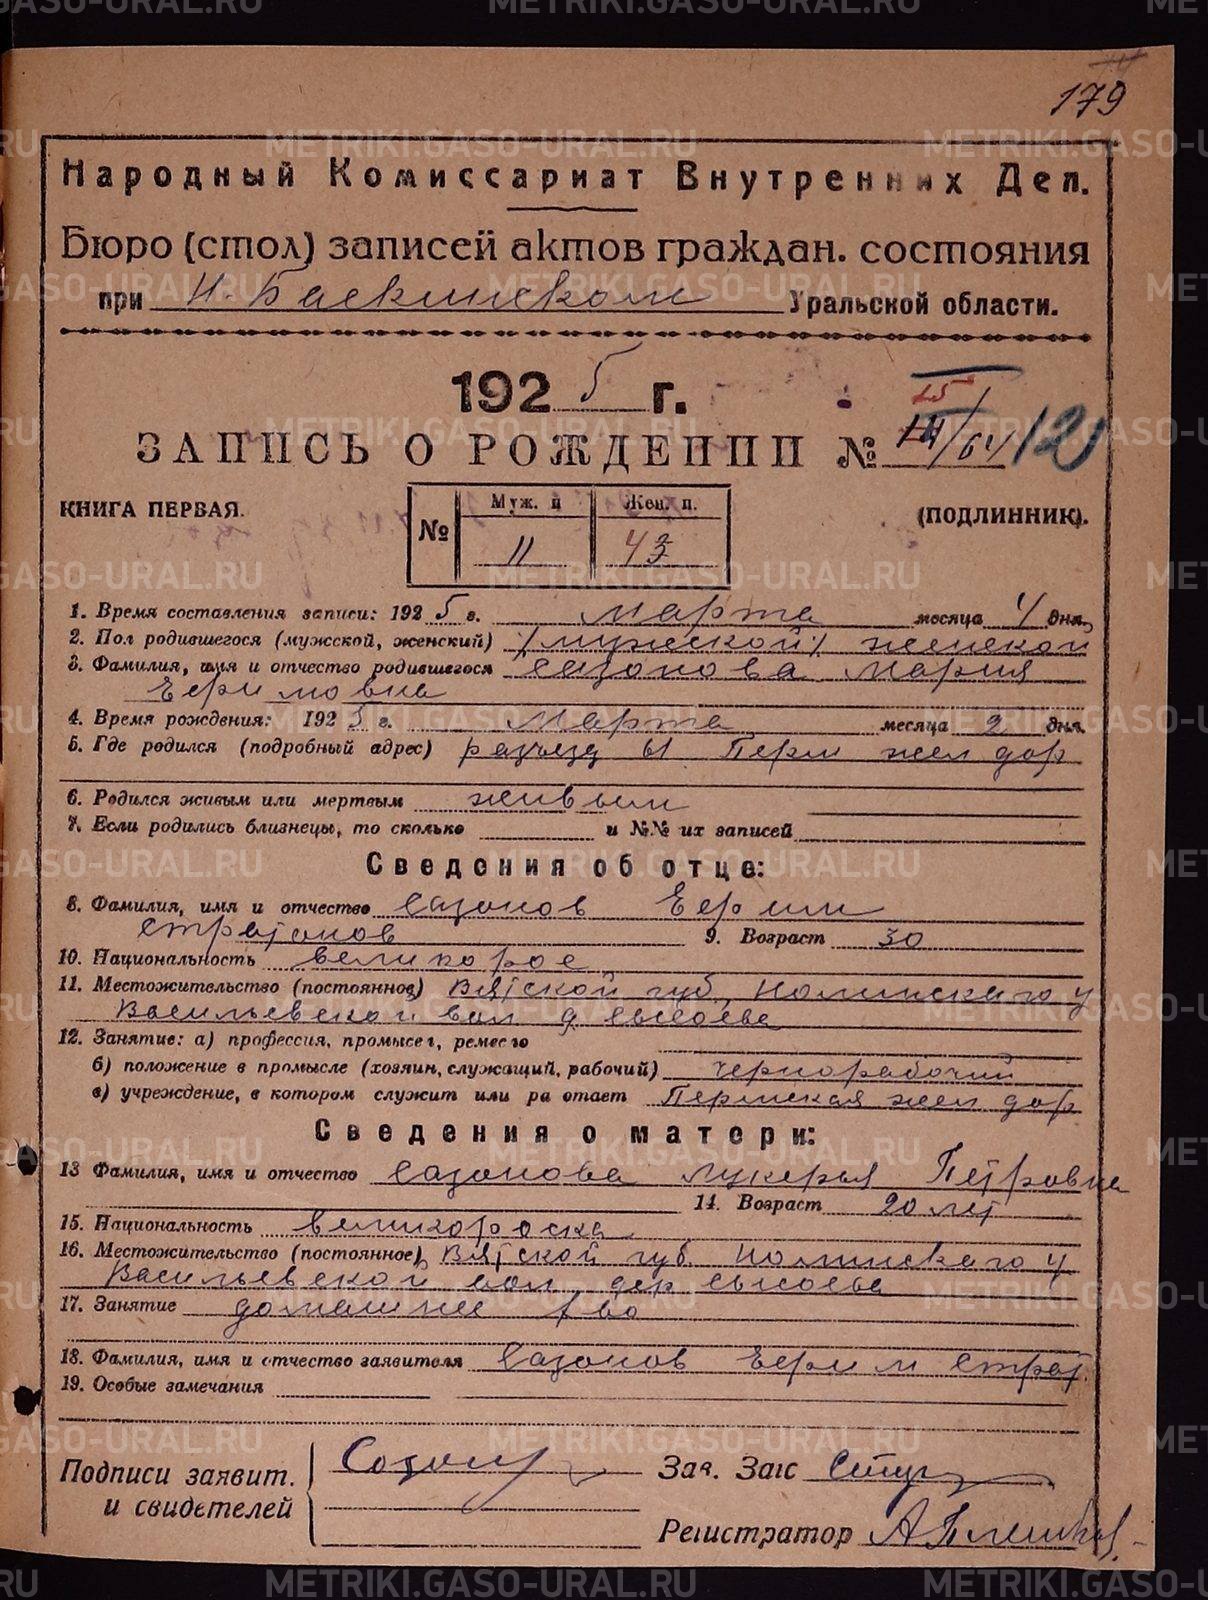 179
Народный Комиссариат Внутренних Дел.
Бюро (стол) записей актов граждан. состояния
при Н. Баскинском Уральской области.
1925 г.
ЗАПИСЬ О РОЖДЕНИИ № 15 III/64 120
КНИГА ПЕРВАЯ. (ПОДЛИННИК).
Муж. п Жен. п.
№ 11 43
1. Время составления записи: 1925 г. марта месяца 4 дня,
2. Пол родившегося (мужской, женский) (мужской) женской
3. Фамилия, имя и отчество родившегося Сазонова Мария
4. Время рождения: 1925 г. Марта месяца 2 дня.
5. Где родился (подробный адрес) разъезд 61 Перм жел дор
6. Родился живым или мертвым живым
7. Если родились близнецы, то сколько и №№ их записей
Сведения об отце:
8. Фамилия, имя и отчество Сазонов
9. Возраст 30
10. Национальность великорос
11. Местожительство (постоянное) Вятской губ. Нолинского у
Васильевской вол д.
12. Занятие: а) профессия, промысел, ремесло
б) положение в промысле (хозяин, служащий, рабочий) чернорабочий
в) учреждение, в котором служит или работает Пермская жел дор
Сведения о матери:
13 Фамилия, имя и отчество Сазонова Лукерья Петровна
14. Возраст 20 лет
15. Национальность великороска
16. Местожительство (постоянное) Вятской губ. Нолинского у
Васильевской вол дер
17. Занятие домашнее х-во
18. Фамилия, имя и отчество заявителя Сазонов
19. Особые замечания
Подписи заявит. и свидетелей Зав. Загс
Регистратор
METRIKI.GASO-URAL.RU